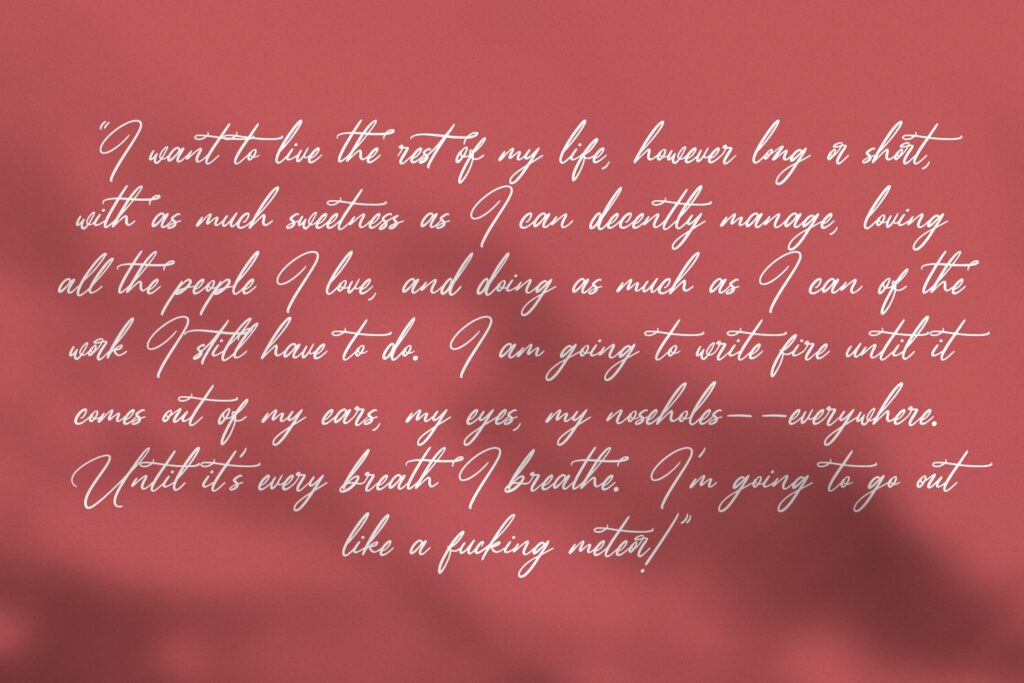 "I want to live the rest of my life, however long or short,
with as much sweetness as I can decently manage, loving
all the people I love, and doing as much as I can of the
work I still have to do. I am going to write fire until it
comes out of my ears, my eyes, my noseholes--everywhere.
Until it's every breath I breathe. I'm going to go out
like a fucking meteor!"